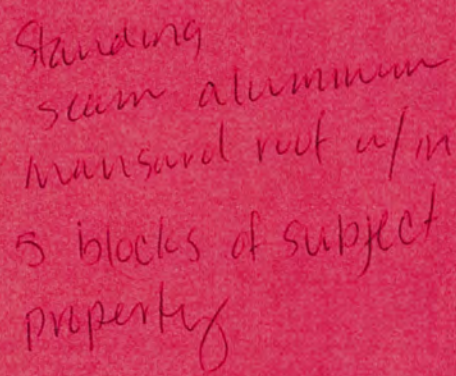 Standing
seam aluminum
mansard roof w/in
5 blocks of subject
property